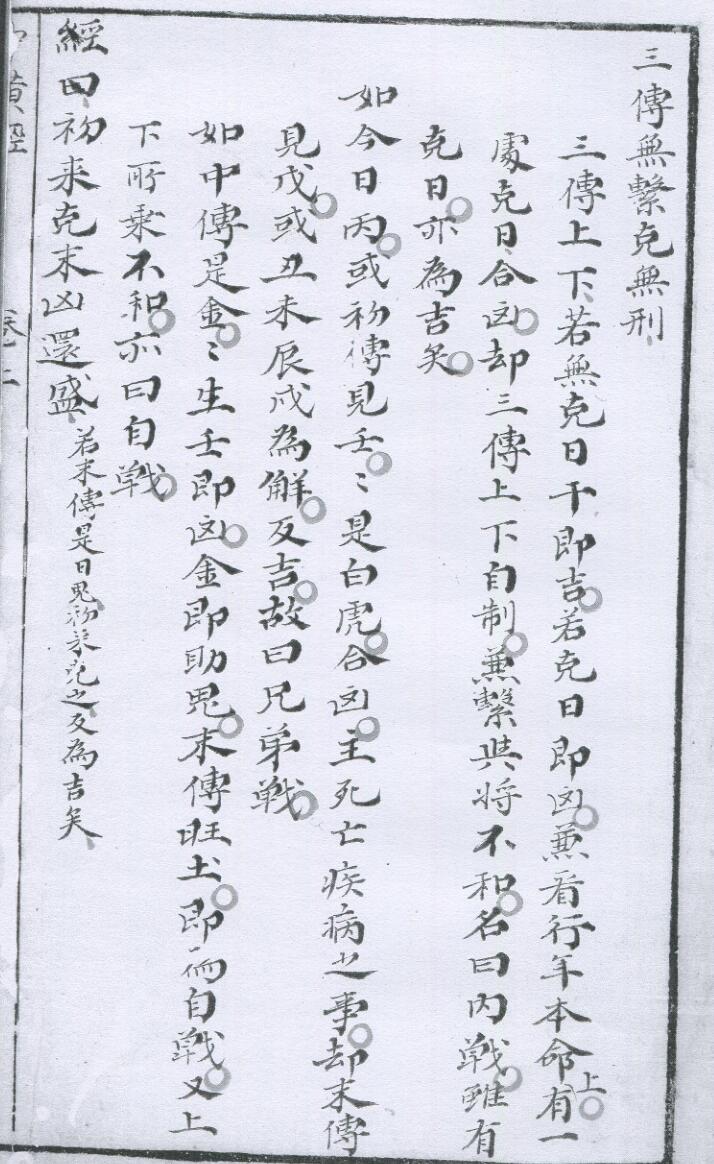 三傳無繫克無刑
三傳上下若無克日干即吉若克日即凶蕪看行年本命上有一
處克日合凶却三傳上下自制蕪繫與將不和名曰内戰雖有
克日亦為吉矣
如今日丙或初傳見壬〻是白虎合凶主死亡疾病之事却末傳
見戊或丑未辰戌為解反吉故曰兄弟戰
如中傳是金〻生壬即凶金即助鬼末傳旺土即而自戰又上
下所乘不和亦曰自戰
經曰初來克末凶還盛 若末傳是日鬼初來克之反為吉矣
黄經 卷上